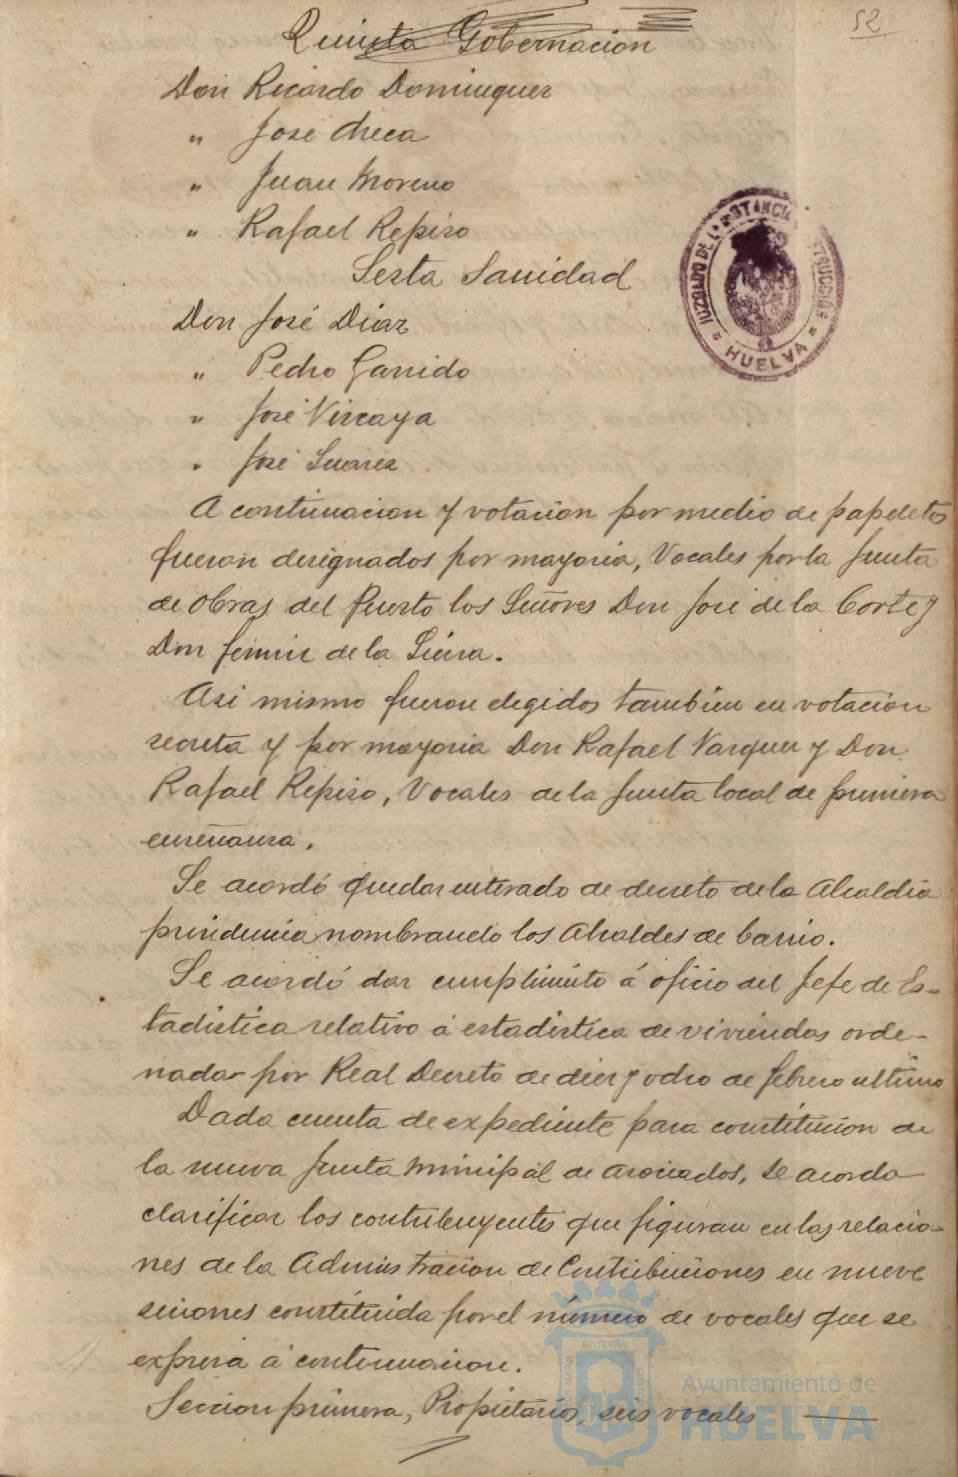 52
Quinta Gobernacion
Don Ricardo Dominguez
" José Checa
" Juan Moreno
" Rafael Repiso
Sesta Sanidad
Don José Diaz
" Pedro Garrido
" José Vizcaya
" José Suarez
JUZGADO DE 1ª INSTANCIA INSTRUCCION
HUELVA
A continuacion y votacion por medio de papeletas
fueron designados por mayoria, Vocales por la Junta
de obras del Puerto los Señores Don José de la Corte y
Don Fermin de la Sierra.
Asi mismo fueron elegidos tambien en votacion
secreta y por mayoria Don Rafael Vazquez y Don
Rafael Repiso, Vocales de la Junta local de primera
enseñanza.
Se acordó quedar enterado de decreto de la Alcaldia
presidencia nombrando los Alcaldes de barrio.
Se acordó dar cumplimiento á oficio del Jefe de Es-
tadistica relativo á estadistica de viviendas orde-
nada por Real Decreto de diez y ocho de febrero ultimo
Dada cuenta de expediente para constitucion de
la nueva Junta Municipal de asociados, se acordo
clasificar los contribuyentes que figuran en las relacio-
nes de la Administracion de Contribuciones en nueve
seciones constituida por el número de vocales que se
expresa á continuacion.
Seccion primera, Propietarios, seis vocales
Ayuntamiento de
HUELVA